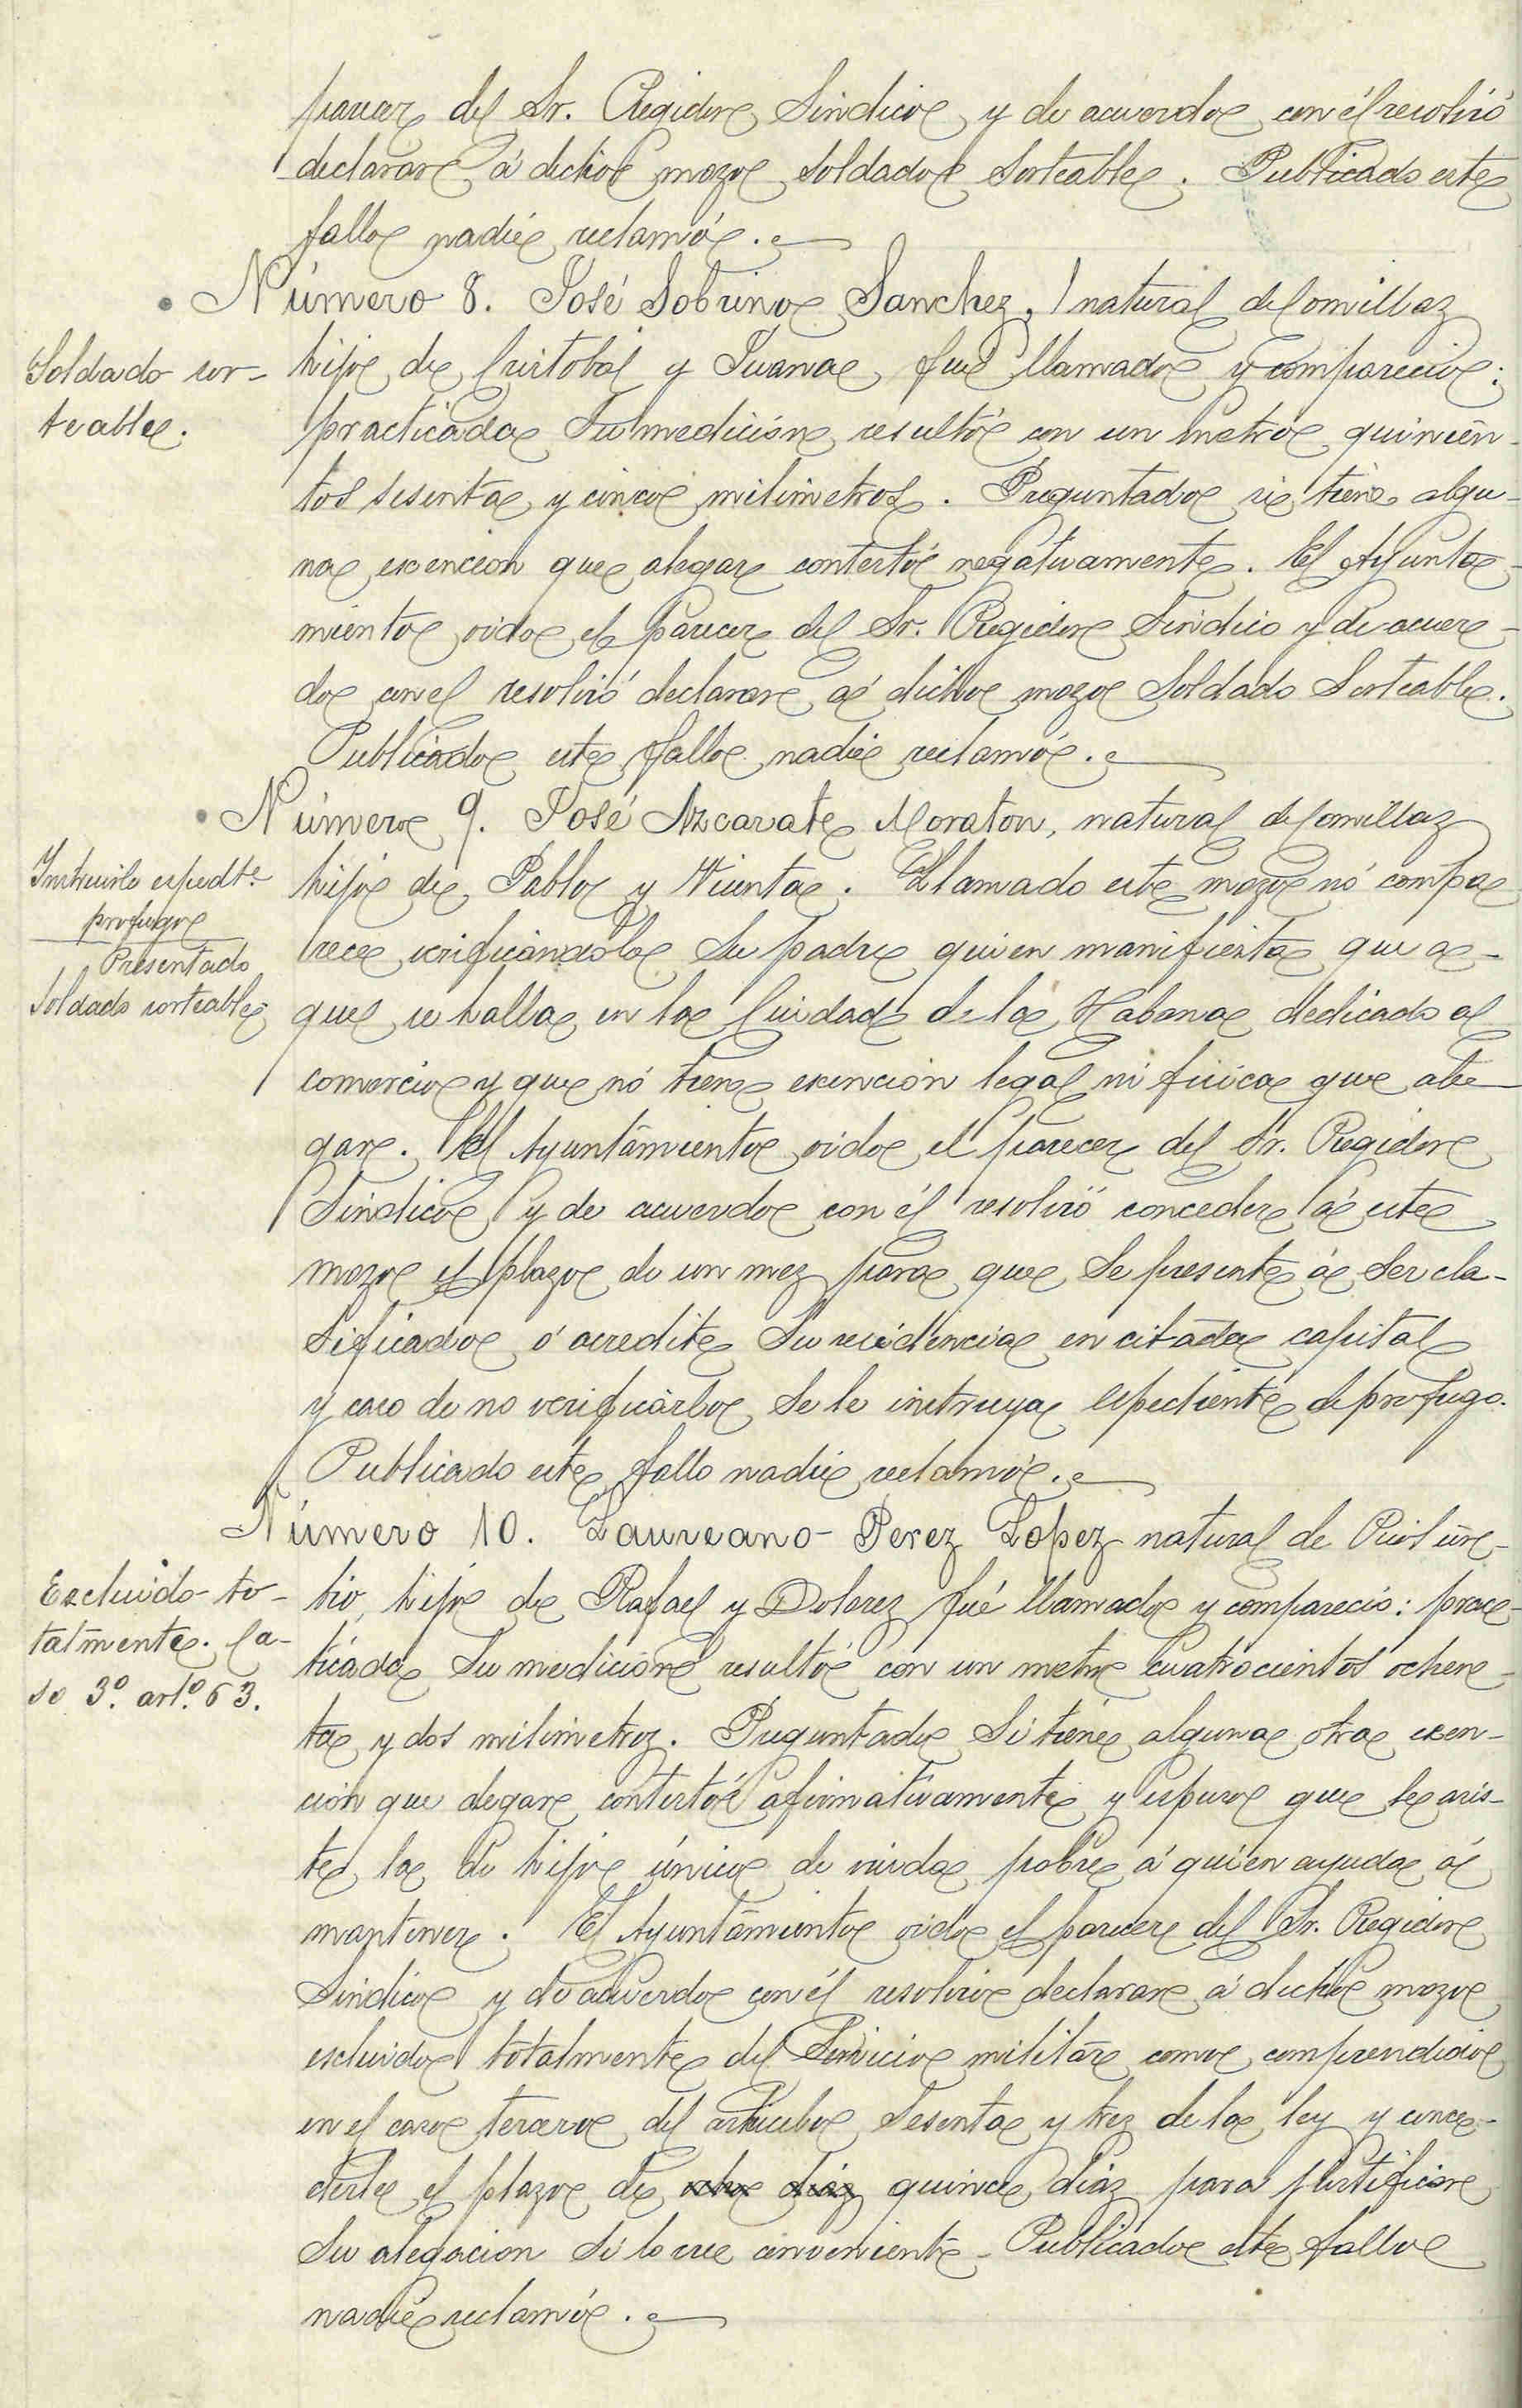 parecer del Sr. Regidor Sindico y de acuerdo con él resolvió
declarar á dicho mozo Soldado Sorteable. Publicado este
fallo nadie reclamó.
Número 8. José Sobrino Sanchez, natural de Comillaz
Soldado sor-
teable.
hijo de Cristobal y Juana fué llamado y compareció:
practicada su medición resultó con un metro quinien-
tos sesenta y cinco milimetros. Preguntado si tiene algu-
na exencion que alegar contestó negativamente. El Ayunta-
miento oido el parecer del Sr. Regidor Sindico y de acuer-
do con el resolvió declarar á dicho mozo Soldado Sorteable.
Publicado este fallo nadie reclamó.
Número 9. José Azcarate Moraton, natural de Comillaz
Instruirle espedte.
profugo
Presentado
Soldado sorteable
hijo de Pablo y Vicenta. Llamado este mozo nó compa
rece verificandolo su padre quien manifiesta que a-
quel se halla en la Ciudad de la Habana dedicado al
comercio y que nó tiene exención legal ni fisica que ale
gar. El Ayuntamiento oido el parecer del Sr. Regidor
Sindico y de acuerdo con él resolvió conceder á este
mozo el plazo de un mez para que se presente á ser cla-
sificado ó acredite su residencia en citada capital
y caso de no verificarlo se le instruya espediente de profugo.
Publicado este fallo nadie reclamó.
Número 10. Laureano Perez Lopez natural de
Escluido to-
talmente. Ca-
so 3º. artº. 63.
hijo de Rafael y Dolorez fué llamado y compareció: prac-
ticada su medición resultó con un metro cuatrocientos ochen-
ta y dos milimetroz. Preguntado si tiene alguna otra exen-
ción que alegar contestó afirmativamente y espuso que le asis-
te la de hijo único de viuda pobre á quien ayuda á
mantener. El Ayuntamiento oido el parecer del Sr. Regidor
Sindico y de acuerdo con él resolvió declarar á dicho mozo
escluido totalmente del Servicio militar como comprendido
en el caso tercero del articulo Sesenta y trez de la ley y conce-
derle el plazo de ocho diaz quince diaz para justificar
su alegacion si lo cree conveniente. Publicado este fallo
nadie reclamó.